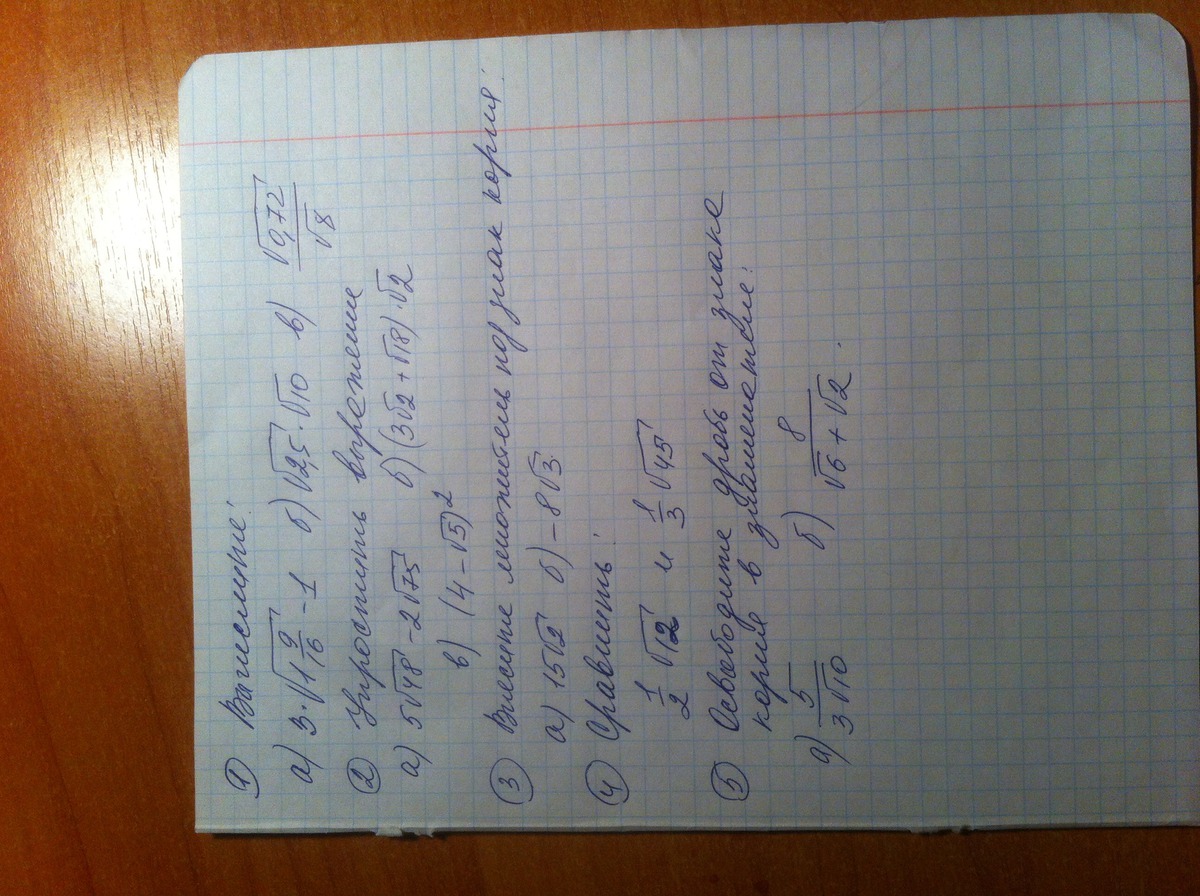 ① Вычислите:
а) 3·√(1 9/16) - 1 б) √2,5·√10 в) √0,72/√8
② Упростить выражение
а) 5√48 - 2√75 б) (3√2 + √18)·√2
в) (4 - √5)²
③ Внесите множитель под знак корня:
а) 15√2 б) - 8√3.
④ Сравнить:
1/2 √12 и 1/3 √45
⑤ Освободите дробь от знака
корня в знаменателе:
а) 5/(3√10) б) 8/(√6 + √2).